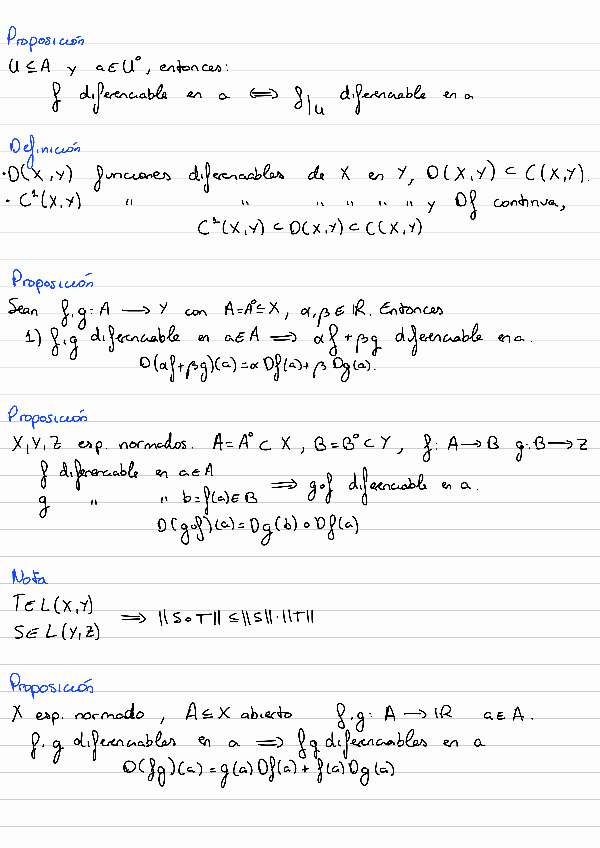 Proposición
U ⊆ A y a ∈ U°, entonces:
f diferenciable en a ⟺ f|u diferenciable en a
Definición
· D(X,Y) funciones diferenciables de X en Y, D(X,Y) ⊂ C(X,Y).
· C¹(X,Y) " " " " " " y Df continua,
C¹(X,Y) ⊂ D(X,Y) ⊂ C(X,Y)
Proposición
Sean f,g: A ⟶ Y con A=A°⊆X, α,β ∈ ℝ. Entonces
1) f,g diferenciable en a∈A ⟹ αf + βg diferenciable en a.
D(αf+βg)(a) = α Df(a) + β Dg(a).
Proposición
X,Y,Z esp. normados. A=A° ⊂ X, B=B° ⊂ Y, f: A → B g: B ⟶ Z
f diferenciable en a∈A
g " " b=f(a)∈B ⟹ g∘f diferenciable en a.
D(g∘f)(a) = Dg(b) ∘ Df(a)
Nota
T∈L(X,Y)
S∈L(Y,Z) ⟹ ||S∘T|| ≤ ||S||·||T||
Proposición
X esp. normado, A⊆X abierto f,g: A → ℝ a∈A.
f,g diferenciables en a ⟹ fg diferenciables en a
D(fg)(a) = g(a) Df(a) + f(a) Dg(a)